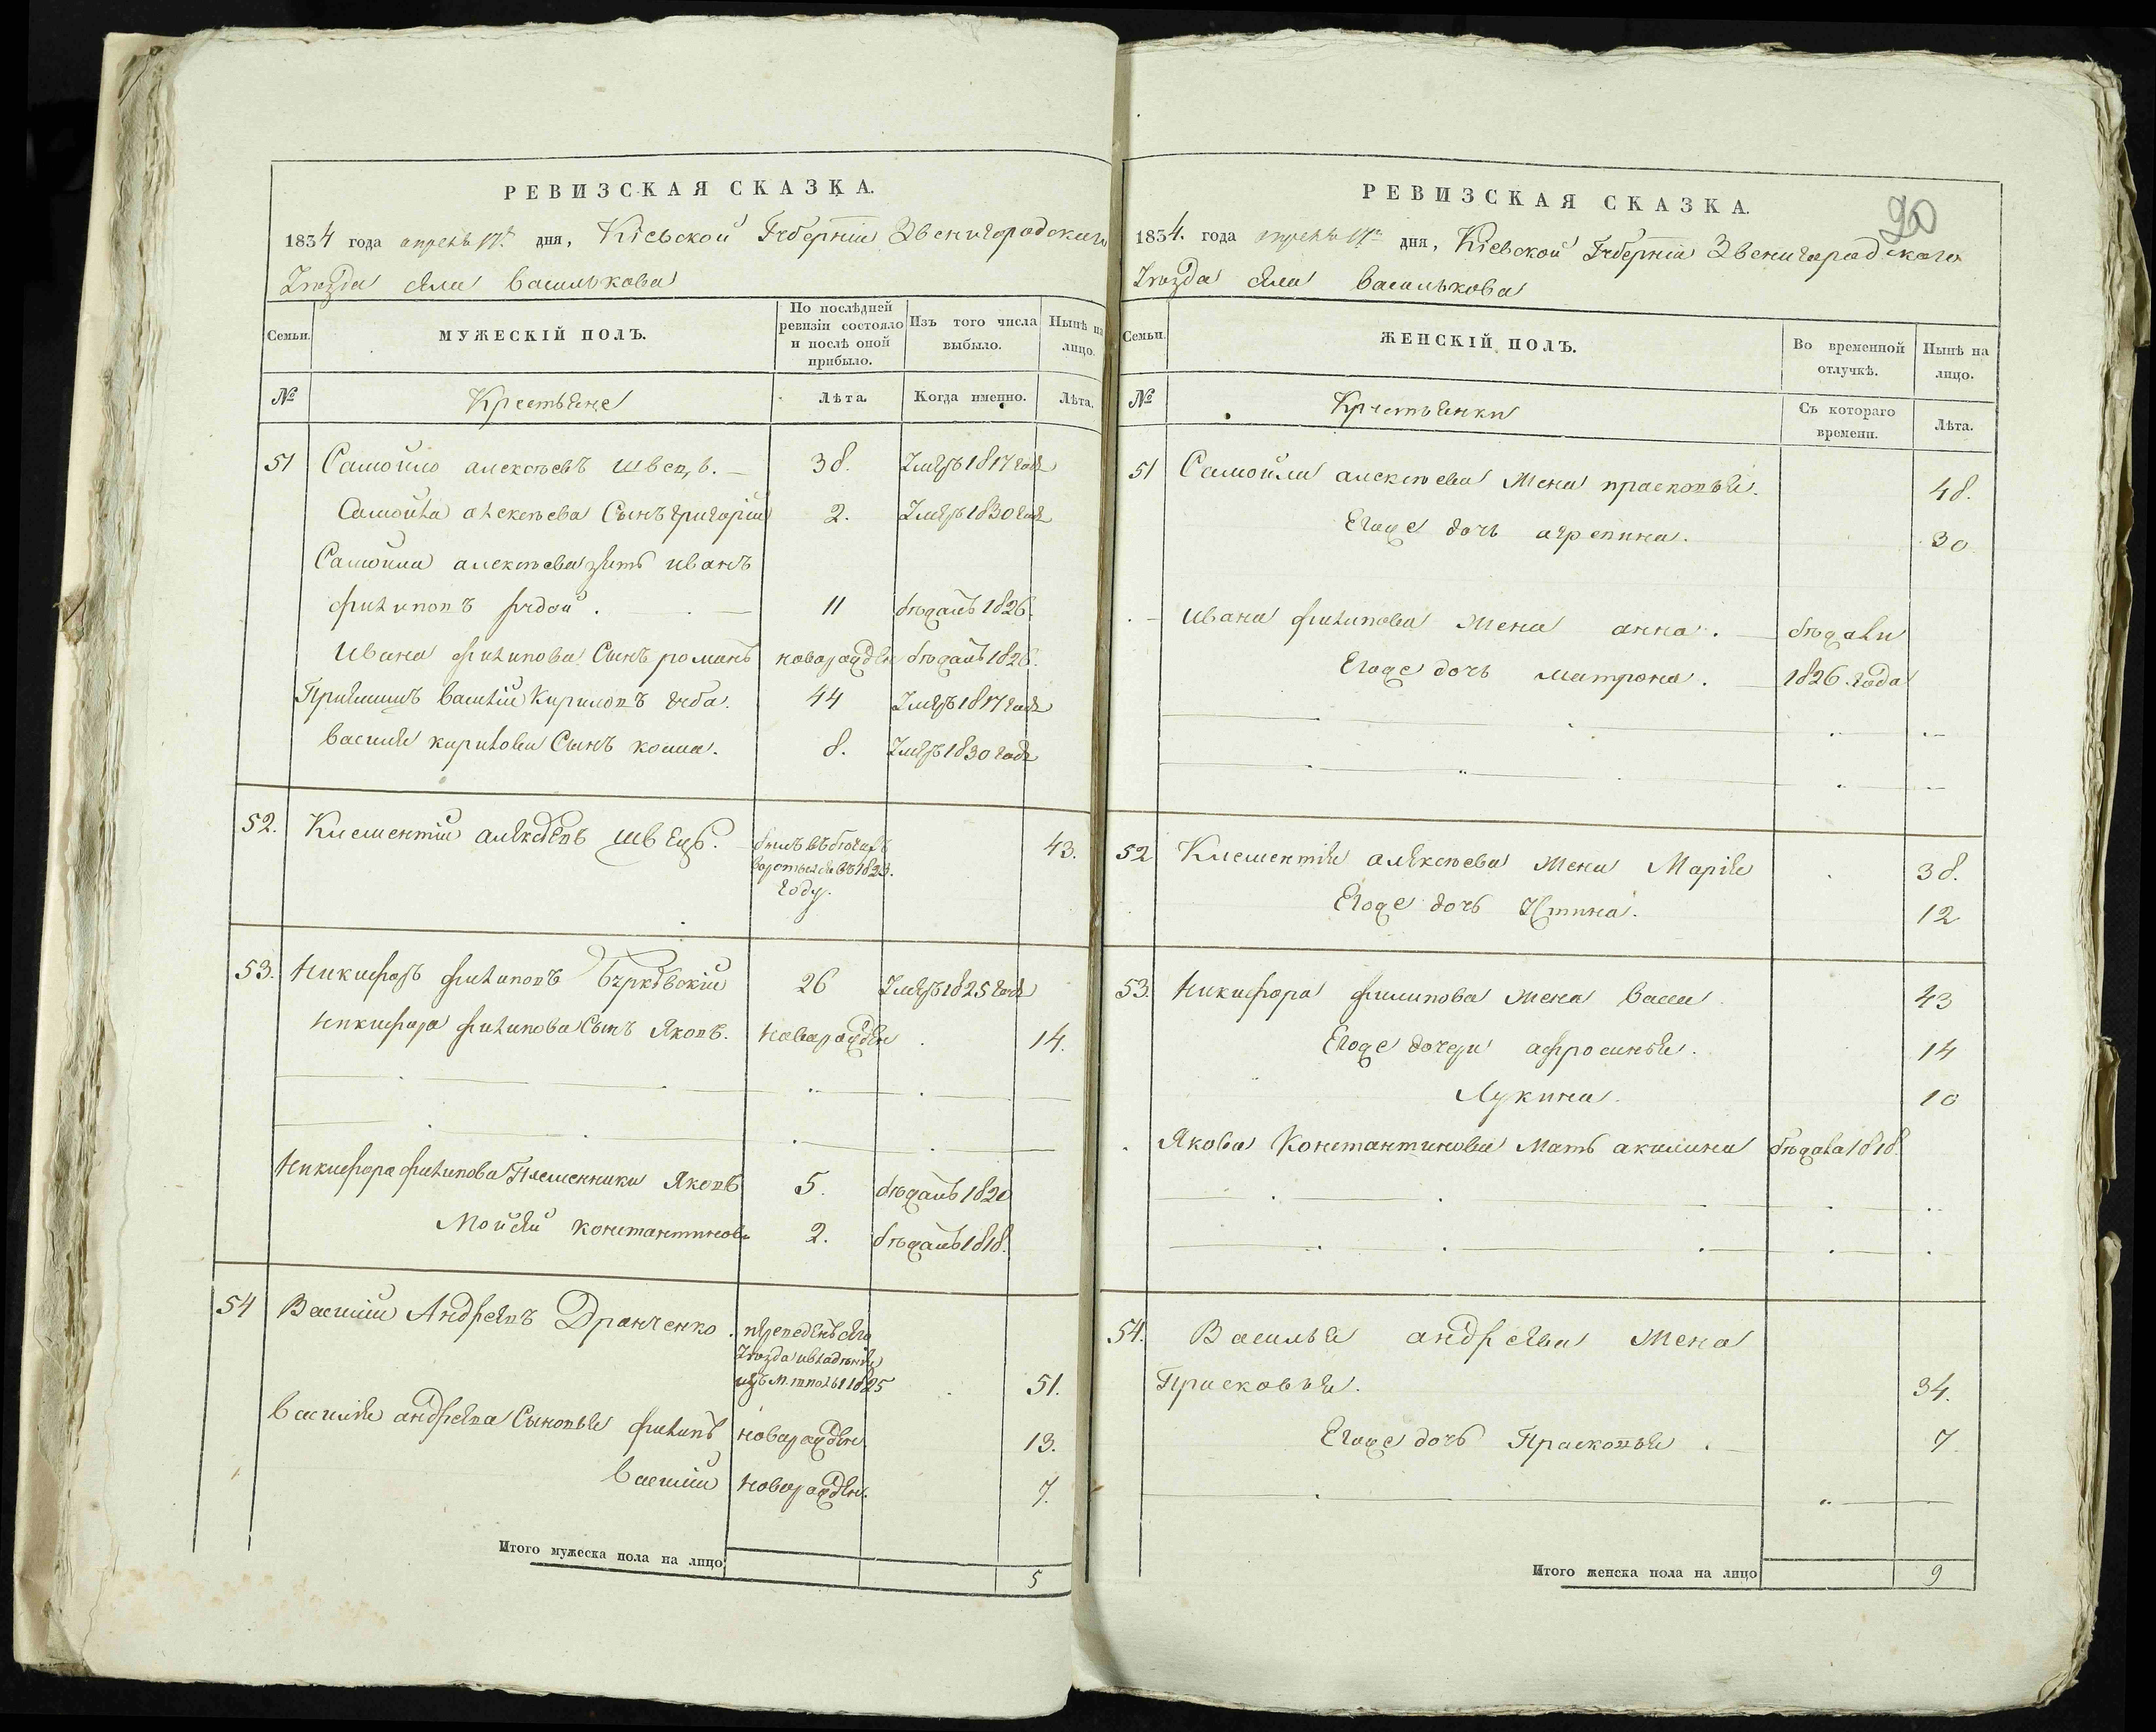 РЕВИЗСКАЯ СКАЗКА.
1834 года апреля 17 дня, Кіевской Губерніи Звенигородскаго
Уезда села Василькова
Семьи.
МУЖЕСКІЙ ПОЛЪ.
По послѣдней ревизіи состояло и послѣ оной прибыло.
Изъ того числа выбыло.
Нынѣ на лицо.
№ Крестьяне Лѣта. Когда именно. Лѣта.
51 Самойло алексѣевъ швецъ. 38. Умеръ 1817 года
Самойла алексѣева Сынъ григорій 2. Умеръ 1830 года
Самойла алексѣева зять иванъ
филиповъ 11 бѣжалъ 1826.
Ивана филипова Сынъ романъ новорожден бѣжалъ 1826.
Васілій Кириловъ 44 Умеръ 1817 года
Василя кирилова Сынъ 8. Умеръ 1830 года
52. Клементій алексеевъ швецъ. 43.
былъ въ бѣгахъ
въ 1823.
году.
53. Никифоръ филиповъ 26 Умеръ 1825 года
Никифора филипова Сынъ Яковъ. Новорожден 14.
Никифора филипова Племенники Яковъ 5. бѣжалъ 1820
Мойсей константинов 2. бѣжалъ 1818.
54 Василій Андреевъ Дранченко.
Уезда
1825 51.
Василя андреева Сыновья филипъ новорожден. 13.
Василій новорожден. 7.
Итого мужеска пола на лицо 5
РЕВИЗСКАЯ СКАЗКА.
20
1834. года апреля 17 дня, Кіевской Губерніи Звенигородскаго
Уезда села Василькова
Семьи.
ЖЕНСКІЙ ПОЛЪ.
Во временной отлучкѣ.
Нынѣ на лицо.
№ Крестьянки Съ котораго времени. Лѣта.
51 Самойла алексѣева жена прасковья. 48.
Егоже дочь агрепина. 30
Ивана филипова жена анна. бѣжали
Егоже дочь матрона. 1826 года
52 Клементія алексѣева жена Марія 38.
Егоже дочь 12
53. Никифора филипова жена Васса 43
Егоже дочери афросинья. 14
Лукина. 10
Якова Константинова Мать акилина бѣжала 1818.
54. Василья андреева жена
Прасковья. 34.
Егоже дочь Прасковья. 7
Итого женска пола на лицо 9